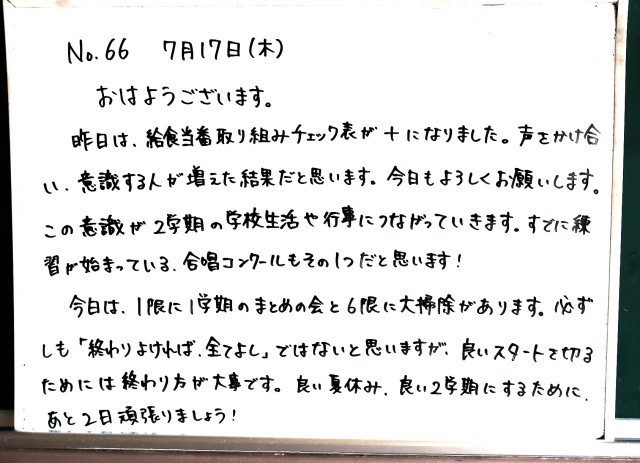 No.66 7月17日(木)
おはようございます。
昨日は、給食当番取り組みチェック表が+になりました。声をかけ合
い、意識する人が増えた結果だと思います。今日もよろしくお願いします。
この意識が2学期の学校生活や行事につながっていきます。すでに練
習が始まっている、合唱コンクールもその1つだと思います!
今日は、1限に1学期のまとめの会と6限に大掃除があります。必ず
しも「終わりよければ、全てよし」ではないと思いますが、良いスタートを切る
ためには終わり方が大事です。良い夏休み、良い2学期にするために、
あと2日頑張りましょう!